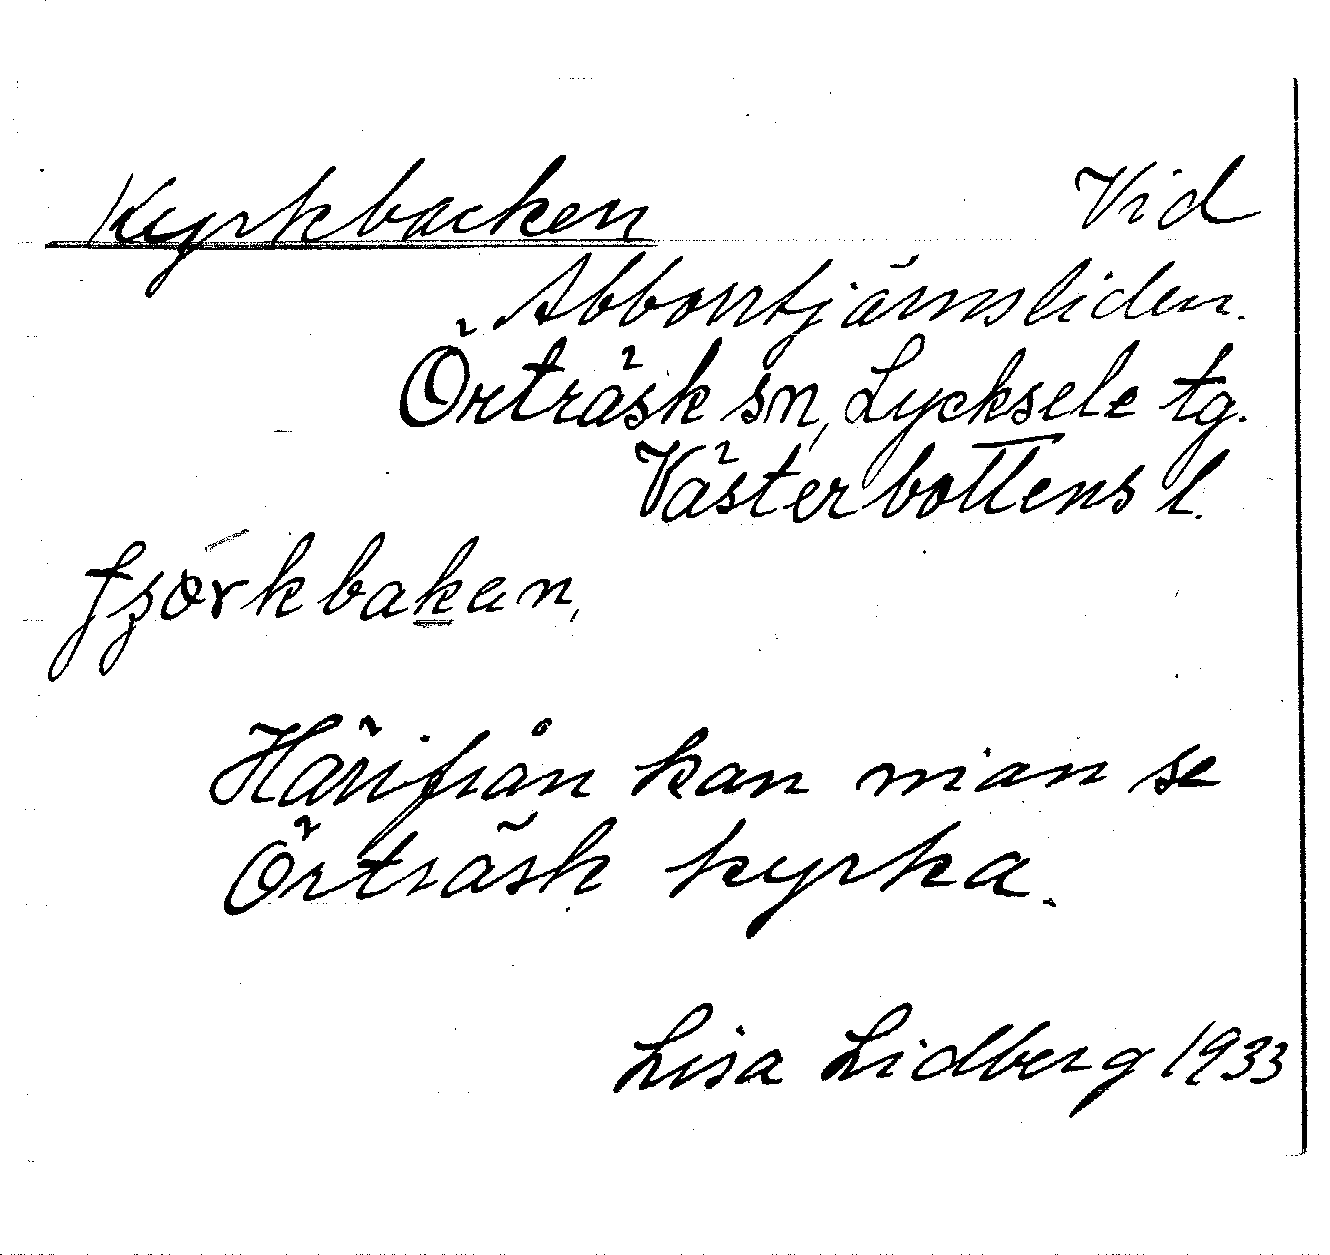 Kyrkbacken Vid
Abborrtjärnsliden.
Örträsk sn, Lycksele tg.
Västerbottens l.
fʒörkbakan,
Härifrån kan man se
Örträsk kyrka.
Lisa Lidberg 1933